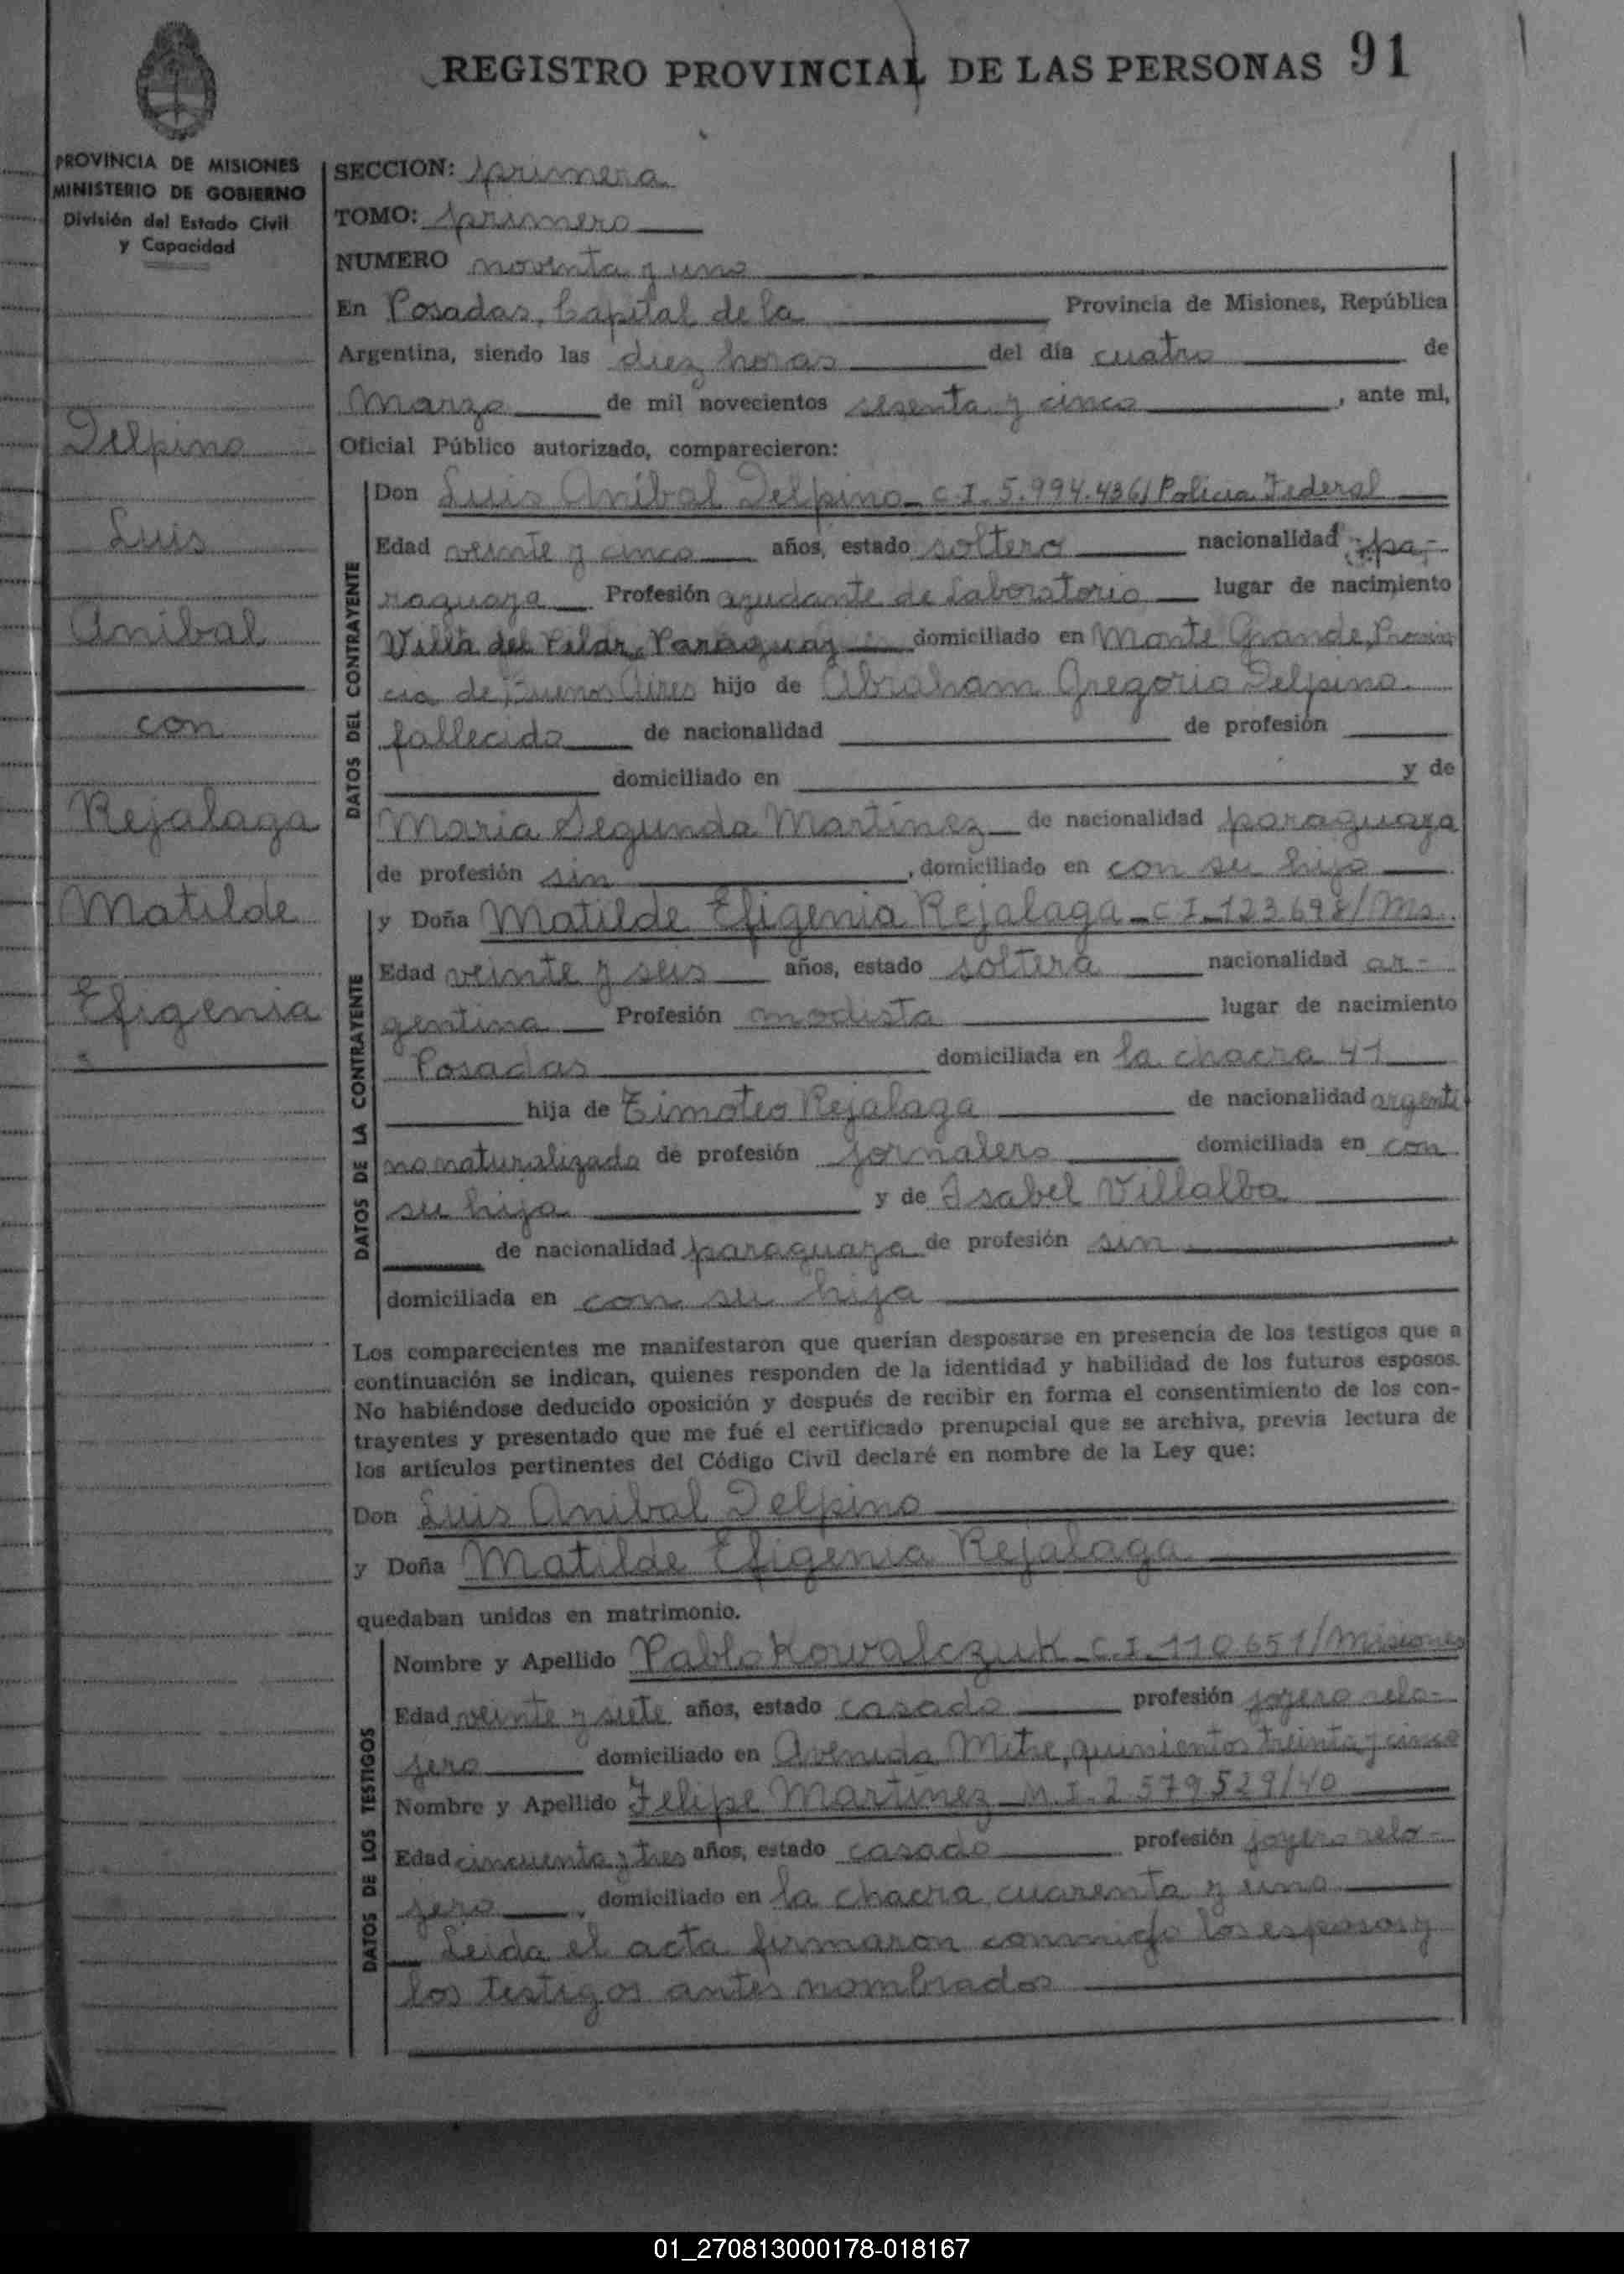 REGISTRO PROVINCIAL DE LAS PERSONAS 91
PROVINCIA DE MISIONES
MINISTERIO DE GOBIERNO
División del Estado Civil
y Capacidad
Delpino
Luis
Anibal
con
Rejalaga
Matilde
Efigenia
SECCION: primera
TOMO: primero
NUMERO noventa y uno
En Posadas, Capital de la Provincia de Misiones, República
Argentina, siendo las diez horas del día cuatro de
Marzo de mil novecientos sesenta y cinco, ante mi,
Oficial Público autorizado, comparecieron:
DATOS DEL CONTRAYENTE
Don Luis Aníbal Delpino - C.I. 5.994.436/ Policia Federal
Edad veinte y cinco años, estado soltero nacionalidad pa-
raguaya Profesión ayudante de laboratorio lugar de nacimiento
Villa del Pilar, Paraguay domiciliado en Monte Grande, Provin
cia de Buenos Aires hijo de Abraham Gregorio Delpino
fallecido de nacionalidad de profesión
domiciliado en y de
Maria Segunda Martínez de nacionalidad paraguaya
de profesión sin, domiciliado en con su hijo
DATOS DE LA CONTRAYENTE
y Doña Matilde Efigenia Rejalaga - C I - 123.698/Ms.
Edad veinte y seis años, estado soltera nacionalidad ar-
gentina Profesión modista lugar de nacimiento
Posadas domiciliada en la chacra 41
hija de Timoteo Rejalaga de nacionalidad argenti
no naturalizado de profesión jornalero domiciliada en con
su hija y de Isabel Villalba
de nacionalidad paraguaya de profesión sin
domiciliada en con su hija
Los comparecientes me manifestaron que querían desposarse en presencia de los testigos que a
continuación se indican, quienes responden de la identidad y habilidad de los futuros esposos.
No habiéndose deducido oposición y después de recibir en forma el consentimiento de los con-
trayentes y presentado que me fué el certificado prenupcial que se archiva, previa lectura de
los artículos pertinentes del Código Civil declaré en nombre de la Ley que:
Don Luis Anibal Delpino
y Doña Matilde Efigenia Rejalaga
quedaban unidos en matrimonio.
DATOS DE LOS TESTIGOS
Nombre y Apellido Pablo Kowalczuk - C.I. 110651/Misiones
Edad veinte y siete años, estado casado profesión joyero relo-
jero domiciliado en Avenida Mitre, quinientos treinta y cinco
Nombre y Apellido Felipe Martínez - M.I. 2579529/40
Edad cincuenta y tres años, estado casado profesión joyero relo-
jero, domiciliado en la chacra cuarenta y uno
Leida el acta firmaron conmigo los esposos y
los testigos antes nombrados
01_270813000178-018167